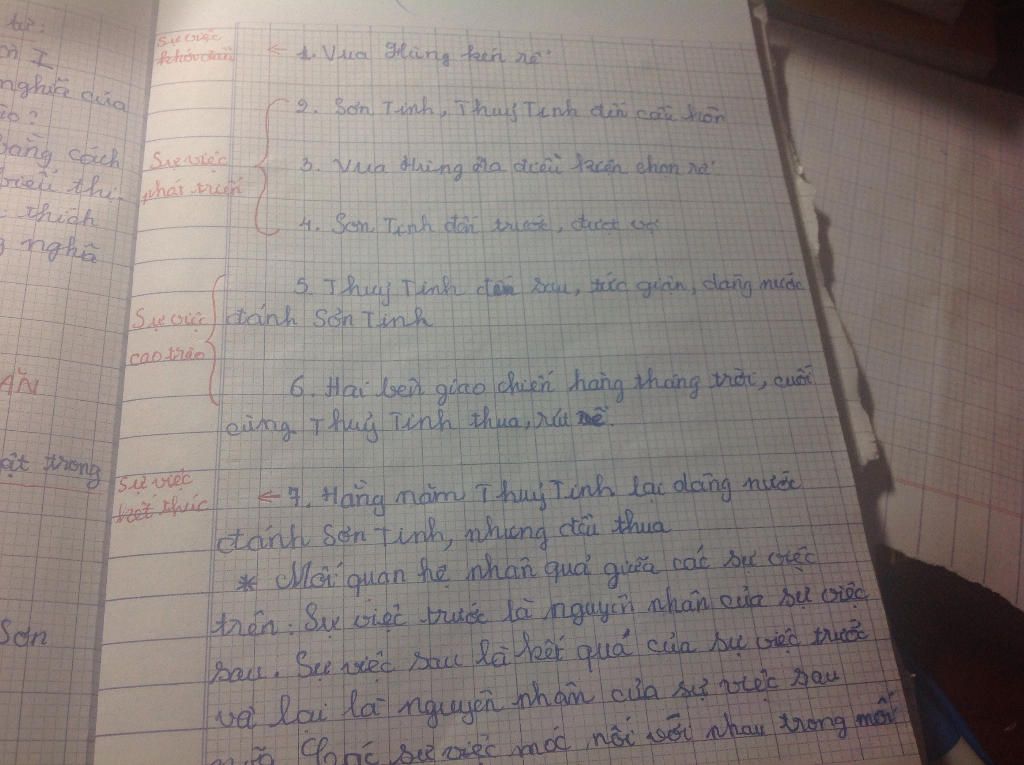 tử:
I
nghĩa của
ào?
bằng cách
biểu thị
thích
nghĩa
ĂN
ật trong
Sơn
Sự việc
khởi đầu
← 1. Vua Hùng kén rể
2. Sơn Tinh, Thuỷ Tinh đến cầu hôn
3. Vua Hùng ra điều kiện chọn rể
Sự việc
phát triển
4. Sơn Tinh đến trước, được vợ
5. Thuỷ Tinh đến sau, tức giận, dâng nước
đánh Sơn Tinh
Sự việc
cao trào
6. Hai bên giao chiến hàng tháng trời, cuối
cùng Thuỷ Tinh thua, rút về.
Sự việc
kết thúc
← 7. Hằng năm Thuỷ Tinh lại dâng nước
đánh Sơn Tinh, nhưng đều thua
* Mối quan hệ nhân quả giữa các sự việc
trên: Sự việc trước là nguyên nhân của sự việc
sau. Sự việc sau là kết quả của sự việc trước
và lại là nguyên nhân của sự việc sau
nữa. Các sự việc móc nối với nhau trong mối